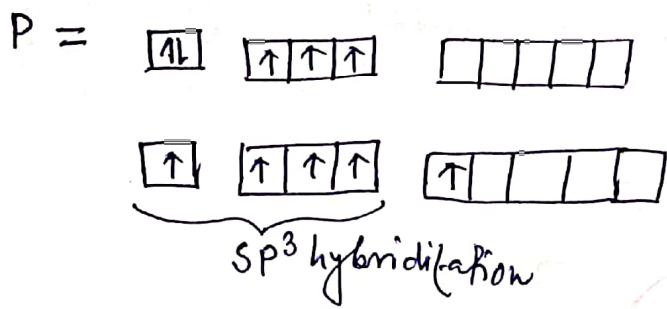 P = ↑↓ ↑ ↑ ↑
↑ ↑ ↑ ↑ ↑
SP³ hybridization